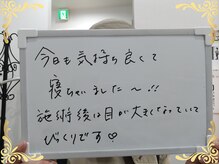 今日も気持ち良くて
寝ちゃいました〜!!
施術後は目が大きくなっていて
びっくりです♡